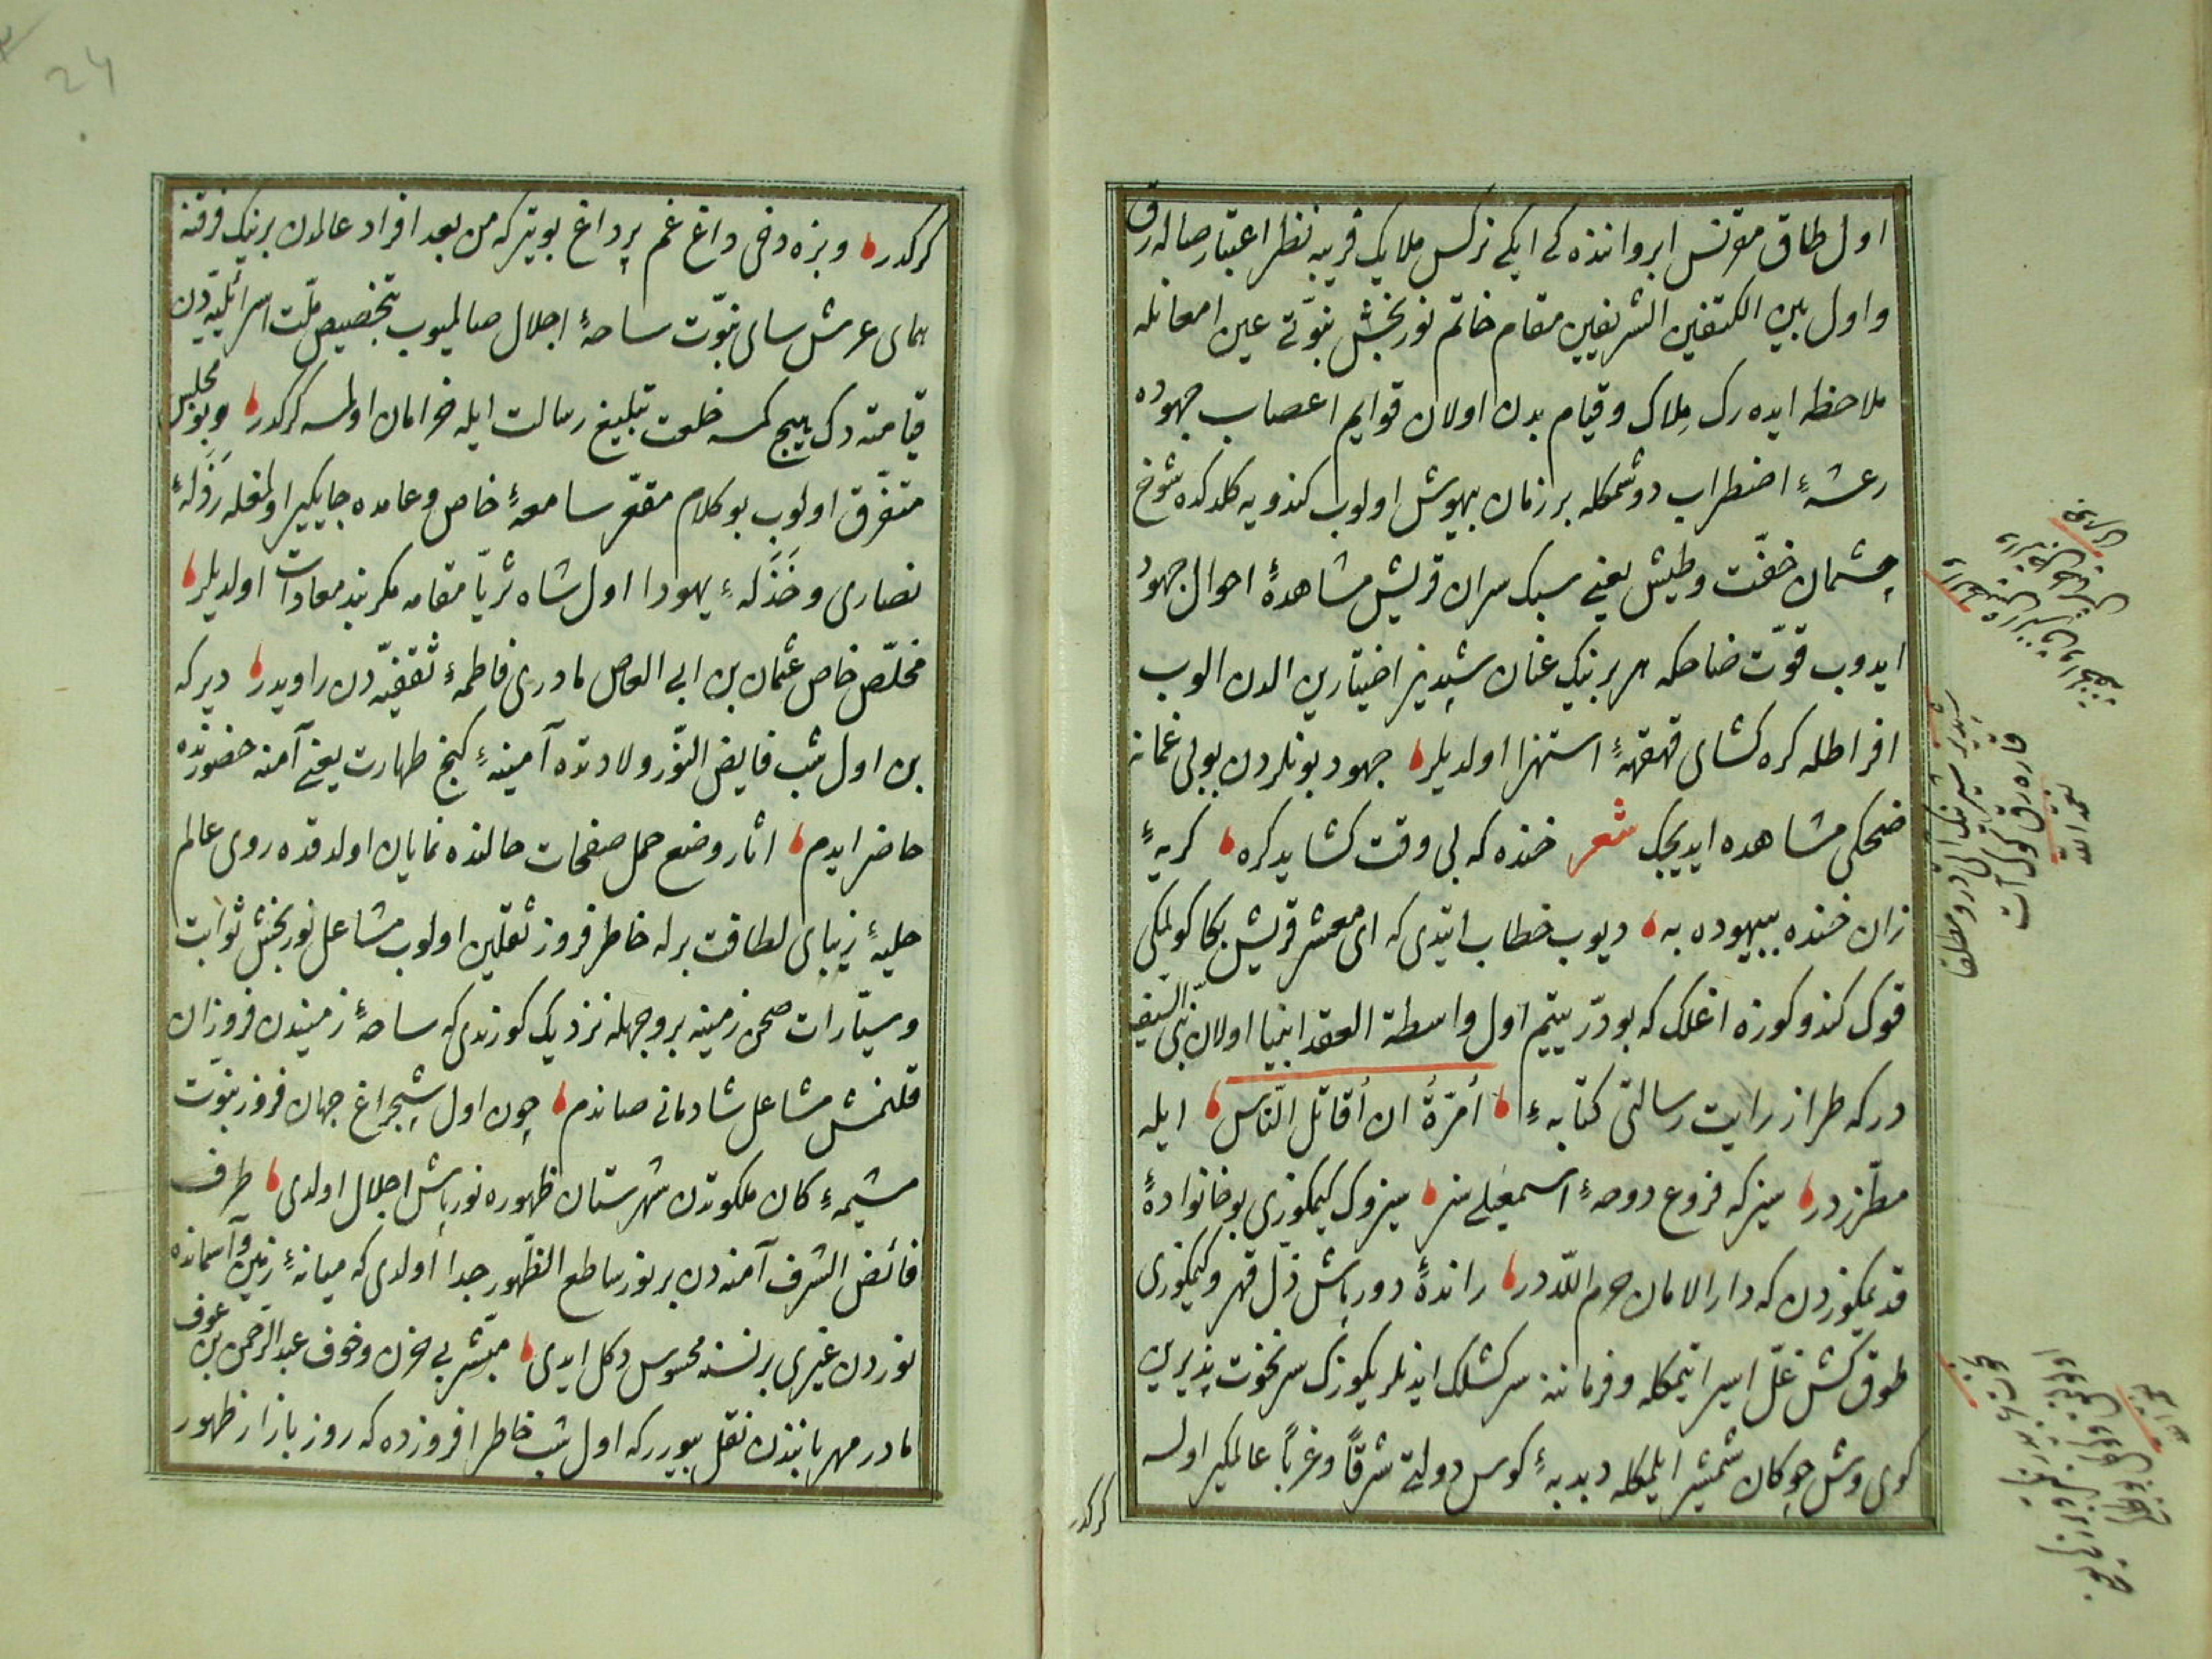 اول طاق مقرنس ابرواننده كی ایكی نركس ملایك فریبه نظر اعتبار صاله رق
واول بین الكتفین الشریفین مقام خاتم نوربخش نبوّتی عین امعانله
ملاحظه ایده رك مِلاك وقیام بدن اولان قوایم اعصاب جهوده
رعشهٔ اضطراب دوشمكله بر زمان بیهوش اولوب كندویه كلدكده شوخ
چشمان خفّت وطیش یعنی سبك سران قریش مشاهدهٔ احوال جهود
ایدوب قوّت ضاحكه هر برینك عنان شبدیز اختیارین الدن الوب
افراطله كره كشای قهقههٔ استهزا اولدیلر جهود بونلردن بوبی غمانه
ضحكی مشاهده ایدیجك شعر خنده كه بی وقت كشاید كره كریهٔ
زان خنده بیهوده به دیوب خطاب ایتدی كه ای معشر قریش بكا كولمكی
قوك كندوكوزه اغلاك كه بو درّ یتیم اول واسطة العقد انبیا اولان نبی السیف
در كه طراز رایت رسالتی كتابهٔ أمرّةُ ان أقاتل النّاس ایله
مطرّزدر سیز كه فروع دوحهٔ اسمعیلی سز سیزوك كیمكوزی بو خانوادهٔ
قدیمكوزدن كه دار الامان حرم اللّه در راندهٔ دورباش ذلّ قهر وكیمكوزی
طوق كش غلّ اسیر ایتمكله وفرماننه سركشلك ایدنلریكوزك سر نخوت پذیرین
كوی وش چوكان شمشیر ایلمكله دبدبهٔ كوس دولتی شرقاً وغرباً عالمكیر اولسه
كركدر
كركدر وبزه دخی داغ غم پرداغ بویتر كه من بعد افراد عالمدن برینك فرقنه
همای عرش سای نبوّت ساحهٔ اجلال صالمیوب تخصیص ملّت اسرائلیّه دن
قیامته دك هیچ كمسه خلعت تبلیغ رسالت ایله خرامان اولمسه كركدر وبو مجلس
متفرّق اولوب بو كلام مقعّر سامعهٔ خاص وعامده جایكیر اولمغله رَذَلهٔ
نصاری وخَذَلهٔ یهودا اول شاه ثریّا مقامه مكربند معادات اولدیلر
مخلّص خاص عثمان بن ابی العاص مادری فاطمهٔ ثقفیّه دن راویدر دیر كه
بن اول شب فایض النّور ولادتده آمینهٔ كنج طهارت یعنی آمنه حضورنده
حاضر ایدم اثار وضع حمل صفحات حالنده نمایان اولدقده روی عالم
حلیهٔ زیبای لطافت برله خاطر فروز ثقلین اولوب مشاعل نوربخش ثوابت
وسیّارات صحن زمینه بر وجهله نزدیك كوزندی كه ساحهٔ زمیندن فروزان
قلنمش مشاعل شادمانی صاندم چون اول شبچراغ جهان فروز نبوّت
مشیمهٔ كان ملكوتدن شهرستان ظهوره نورپاش اجلال اولدی طرف
فائض الشرف آمنه دن بر نور ساطع الظّهور جدا اولدی كه میانهٔ زمین وآسمانده
نوردن غیری بر نسنه محسوس دكل ایدی مبشّر بی حزن وخوف عبد الرّحمن بن عوف
مادر مهرباننذن نقل بیورر كه اول شب خاطر افروزده كه روز بازار ظهور